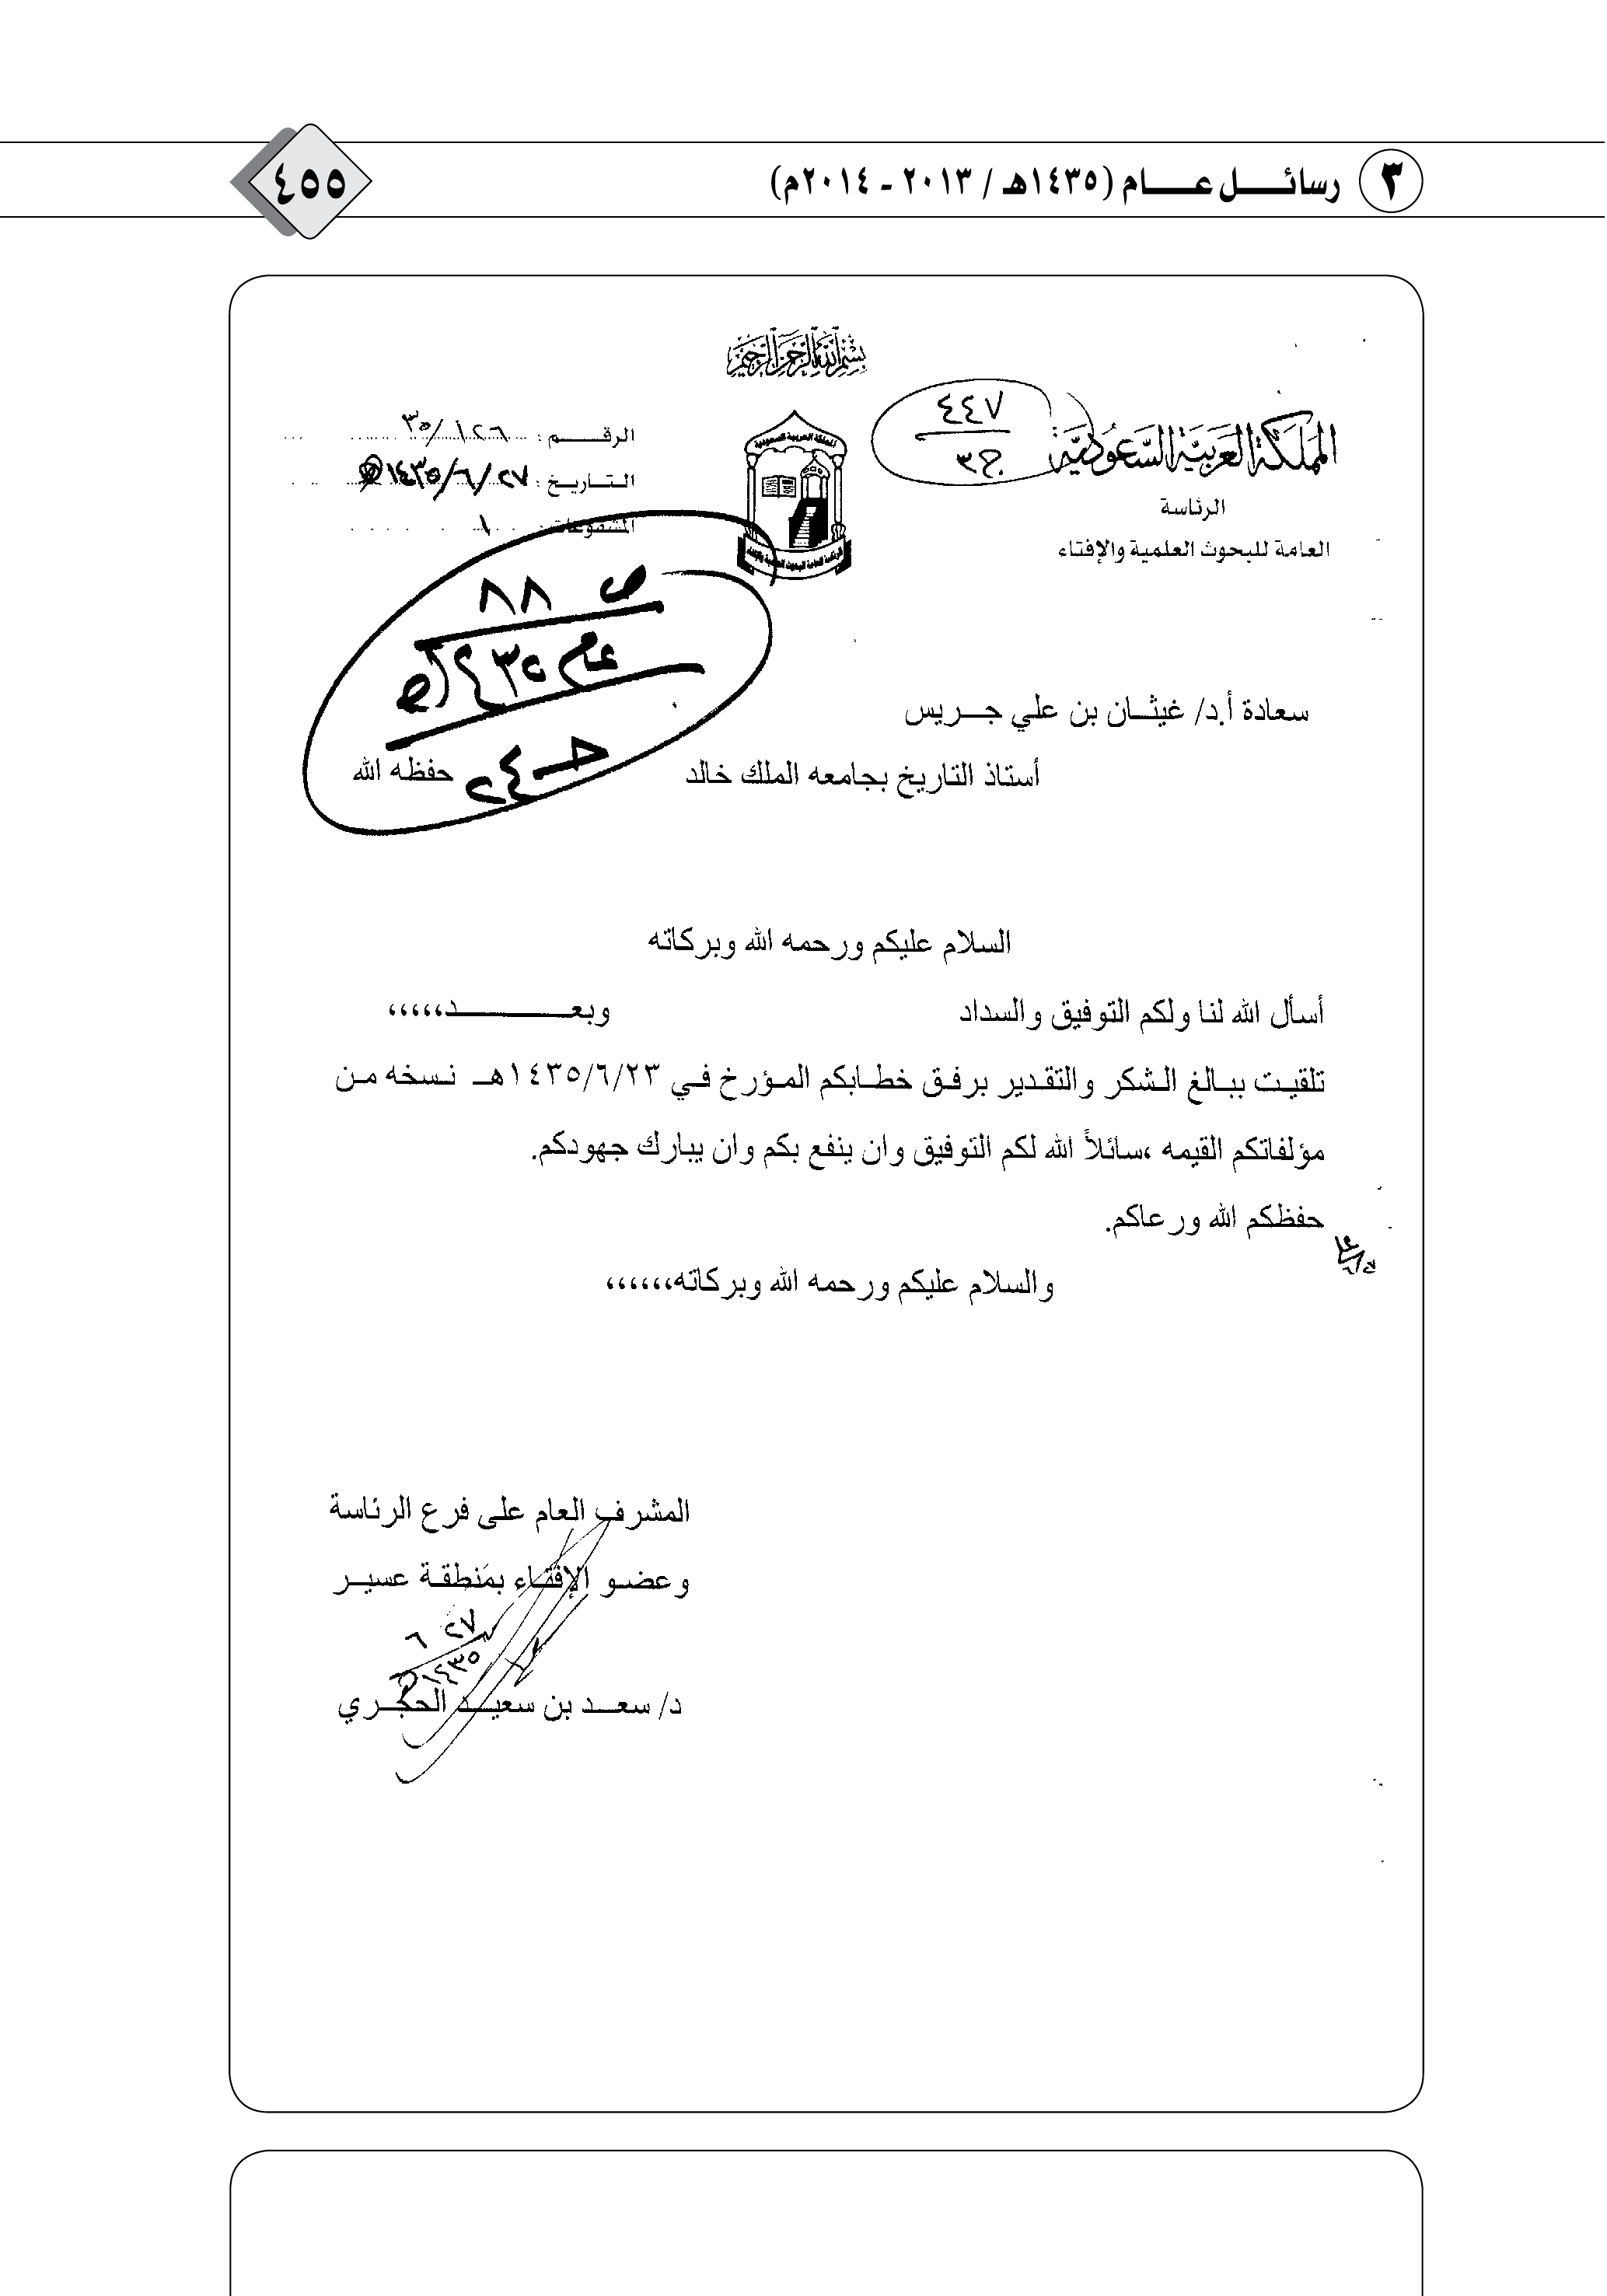 ٣ رسائـــل عـــام (١٤٣٥هـ / ٢٠١٣ - ٢٠١٤م)
٤٥٥
بسم الله الرحمن الرحيم
المملكة العربية السعودية
الرئاسة
العامة للبحوث العلمية والإفتاء
٤٤٧
ج٣
المملكة العربية السعودية
الرقـــــم : ١٢٦/٣٥
التـــاريـــخ : ٢٧/٦/١٤٣٥هـ
المشفوعات : ١
ص ٨٨
عام ١٤٣٥هـ
سعادة أ.د/ غيثـــان بن علي جـــريس
أستاذ التاريخ بجامعه الملك خالد
حفظه الله
السلام عليكم ورحمه الله وبركاته
أسأل الله لنا ولكم التوفيق والسداد وبعـــــــــــد،،،،،
تلقيـت ببـالغ الـشكر والتقـدير برفـق خطـابكم المـؤرخ فـي ١٤٣٥/٦/٢٣هـ نـسخه مـن
مؤلفاتكم القيمه ،سائلاً الله لكم التوفيق وان ينفع بكم وان يبارك جهودكم.
حفظكم الله ورعاكم.
والسلام عليكم ورحمه الله وبركاته،،،،،،
المشرف العام على فرع الرئاسة
وعضـو الإفتـاء بمنطقـة عسيـر
٢٧ ٦
١٤٣٥هـ
د/ سعـــد بن سعيـــد الحجـــري